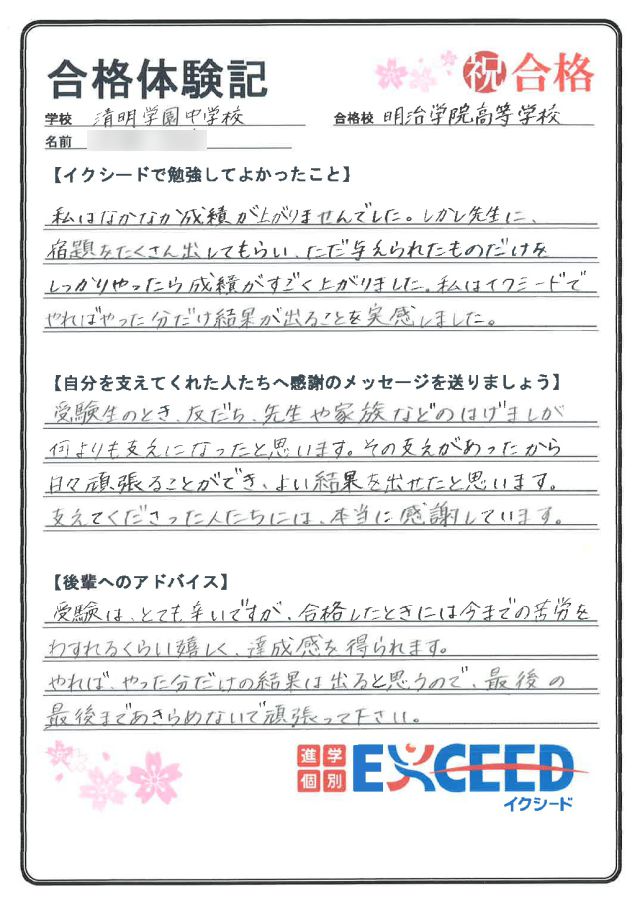 合格体験記
祝 合格
学校 清明学園中学校
合格校 明治学院高等学校
名前
【イクシードで勉強してよかったこと】
私はなかなか成績が上がりませんでした。しかし先生に、
宿題をたくさん出してもらい、ただ与えられたものだけを
しっかりやったら成績がすごく上がりました。私はイクシードで
やればやった分だけ結果が出ることを実感しました。
【自分を支えてくれた人たちへ感謝のメッセージを送りましょう】
受験生のとき、友だち、先生や家族などのはげましが
何よりも支えになったと思います。その支えがあったから
日々頑張ることができ、よい結果を出せたと思います。
支えてくださった人たちには、本当に感謝しています。
【後輩へのアドバイス】
受験は、とても辛いですが、合格したときには今までの苦労を
わすれるくらい嬉しく、達成感を得られます。
やれば、やった分だけの結果は出ると思うので、最後の
最後まであきらめないで頑張って下さい。
進学
個別
EXCEED
イクシード